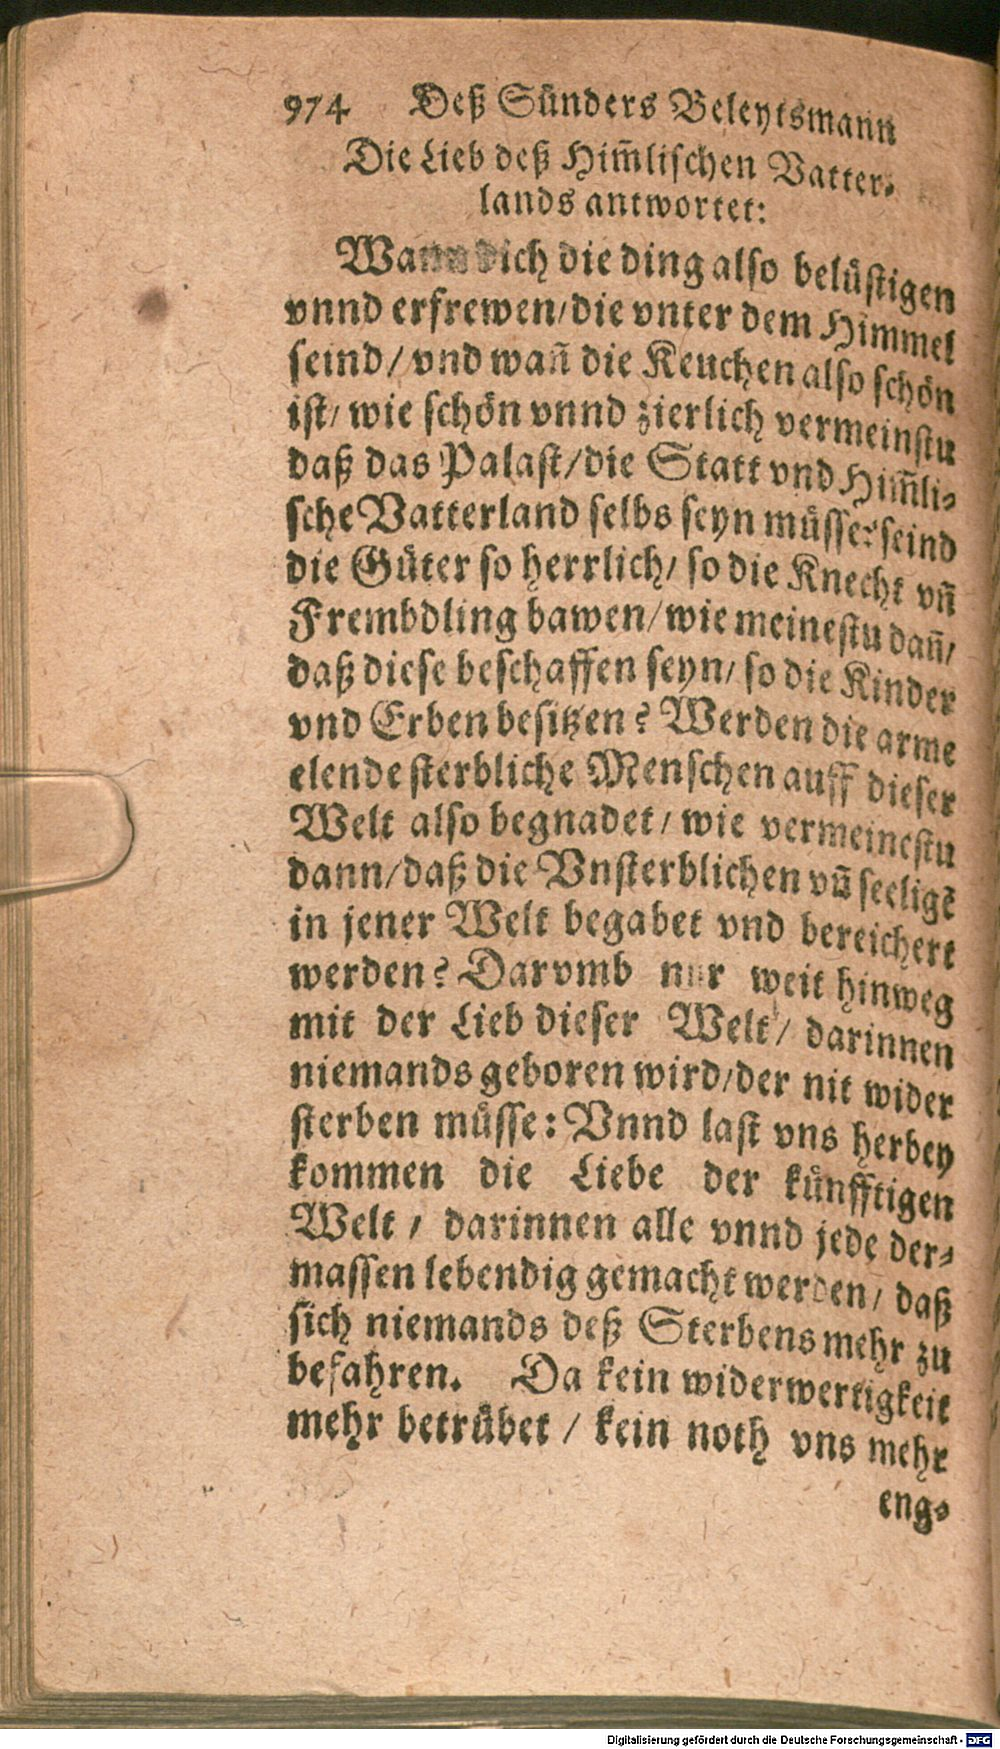 974 Deß Sünders Beleytsmann
Die Lieb deß Him̃lischen Vatter-
lands antwortet:
Wann dich die ding also belüstigen
vnnd erfrewen/die vnter dem Himmel
seind/vnd wañ die Keuchen also schön
ist/ wie schön vnnd zierlich vermeinstu
daß das Palast/die Statt vnd Him̃li-
sche Vatterland selbs seyn müsse? seind
die Güter so herrlich/ so die Knecht vñ
Frembdling bawen/wie meinestu dañ/
daß diese beschaffen seyn/ so die Kinder
vnd Erben besitzen? Werden die arme
elende sterbliche Menschen auff dieser
Welt also begnadet/ wie vermeinestu
dann/daß die Vnsterblichen vñ seeligẽ
in jener Welt begabet vnd bereichert
werden? Darvmb nur weit hinweg
mit der Lieb dieser Welt/ darinnen
niemands geboren wird/der nit wider
sterben müsse: Vnnd last vns herbey
kommen die Liebe der künfftigen
Welt / darinnen alle vnnd jede der-
massen lebendig gemacht werden/ daß
sich niemands deß Sterbens mehr zu
befahren. Da kein widerwertigkeit
mehr betrübet / kein noth vns mehr
eng-
Digitalisierung gefördert durch die Deutsche Forschungsgemeinschaft - DFG